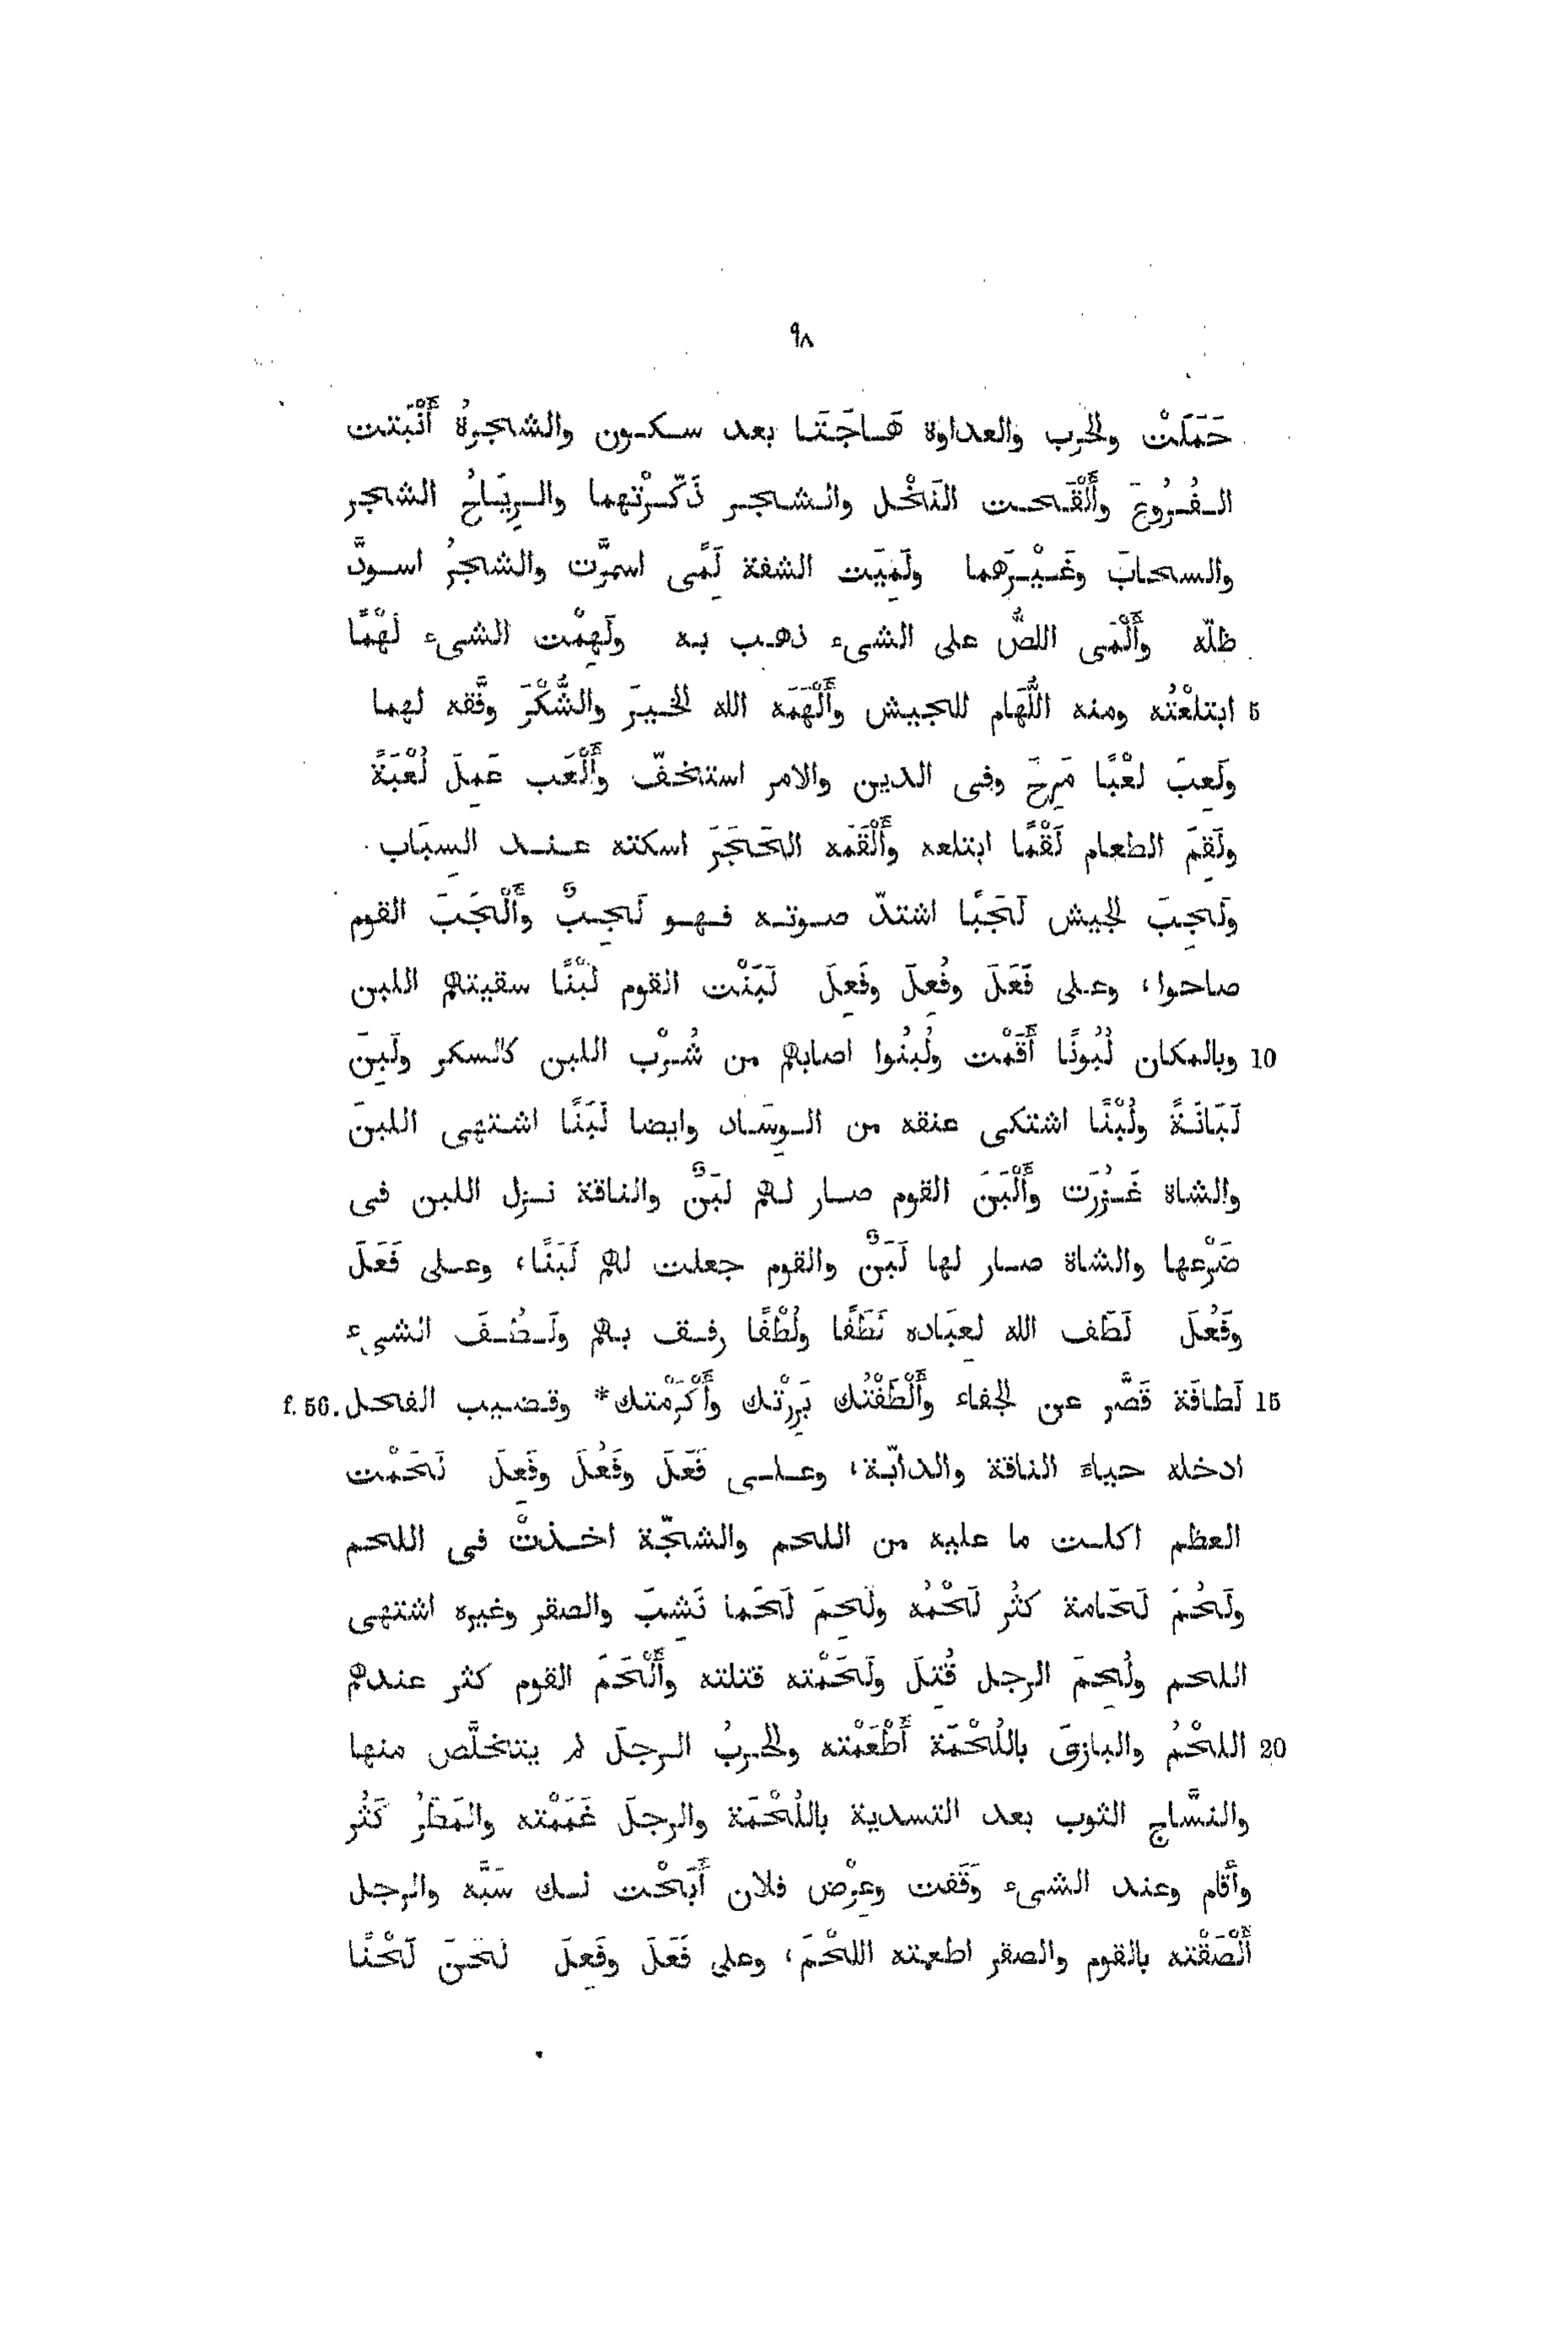 ٩٨
حَمَلَتْ والحرب والعداوة هَاجَتَا بعد سكون والشجرةُ أَنْبَتت
الفُرُوعَ وأَلْقَحت النَخْل والشجر ذَكَّرْتهما والرِيَاحُ الشجر
والسحابَ وغَيْرَهما ولَمِيَت الشفة لَمًى اسمرَّت والشجرُ اسودَّ
ظلّه وأَلْمَى اللصُّ على الشىء ذهب به ولَهِمْت الشىء لَهْمًا
5 ابتلعْتُه ومنه اللُّهَام للجيش وأَلْهَمَه الله الخيرَ والشُّكْرَ وفَّقه لهما
ولَعِبَ لعْبًا مَرِحَ وفى الدين والامر استخفّ وأَلْعَب عَمِلَ لُعْبَةً
ولَقِمَ الطعام لَقْمًا ابتلعه وأَلْقَمَه الحَجَرَ اسكته عند السِبَاب
ولَجِبَ الجيش لَجَبًا اشتدّ صوته فهو لَجِبٌ وأَلْجَبَ القوم
صاحوا، وعلى فَعَلَ وفُعِلَ وفَعِلَ لَبَنْت القوم لَبْنًا سقيتهم اللبن
10 وبالمكان لُبُونًا أَقَمْت ولُبِنُوا اصابهم من شُرْب اللبن كالسكر ولَبِنَ
لَبَانَةً ولُبْنًا اشتكى عنقه من الوِسَاد وايضا لَبَنًا اشتهى اللبنَ
والشاة غَزُرَت وأَلْبَنَ القوم صار لهم لبَنٌ والناقة نزل اللبن فى
ضَرْعها والشاة صار لها لَبَنٌ والقوم جعلت لهم لَبَنًا، وعلى فَعَلَ
وفَعُلَ لَطَف الله لعِبَاده لَطَفًا ولُطْفًا رفق بهم ولَطُفَ الشىء
15 لَطافَة قَصَّر عن الجفاء وأَلْطَفْتُك بَرِرْتك وأَكْرَمْتك* وقضيب الفحل f. 56.
ادخله حياء الناقة والدابّة، وعلى فَعَلَ وفَعُلَ وفَعِلَ لَحَمْت
العظم اكلت ما عليه من اللحم والشجّة اخذتْ فى اللحم
ولَحُمَ لَحَامة كثُر لَحْمُه ولَحِمَ لَحَما نَشِبَ والصقر وغيره اشتهى
اللحم ولُحِمَ الرجل قُتِلَ ولَحَمْته قتلته وأَلْحَمَ القوم كثر عندهم
20 اللحْمُ والبازىَ باللُحْمَة أَطْعَمْته والحربُ الرجلَ لم يتخلَّص منها
والنسَّاج الثوب بعد التسدية باللُحْمَة والرجلَ غَمَمْته والمَطَرُ كَثُر
وأَقام وعند الشىء وَقَفت وعِرْض فلان أَبَحْت لك سَبَّه والرجل
أَلْصَقْته بالقوم والصقر اطعمته اللحْمَ، وعلى فَعَلَ وفَعِلَ لَحَنَ لَحْنًا